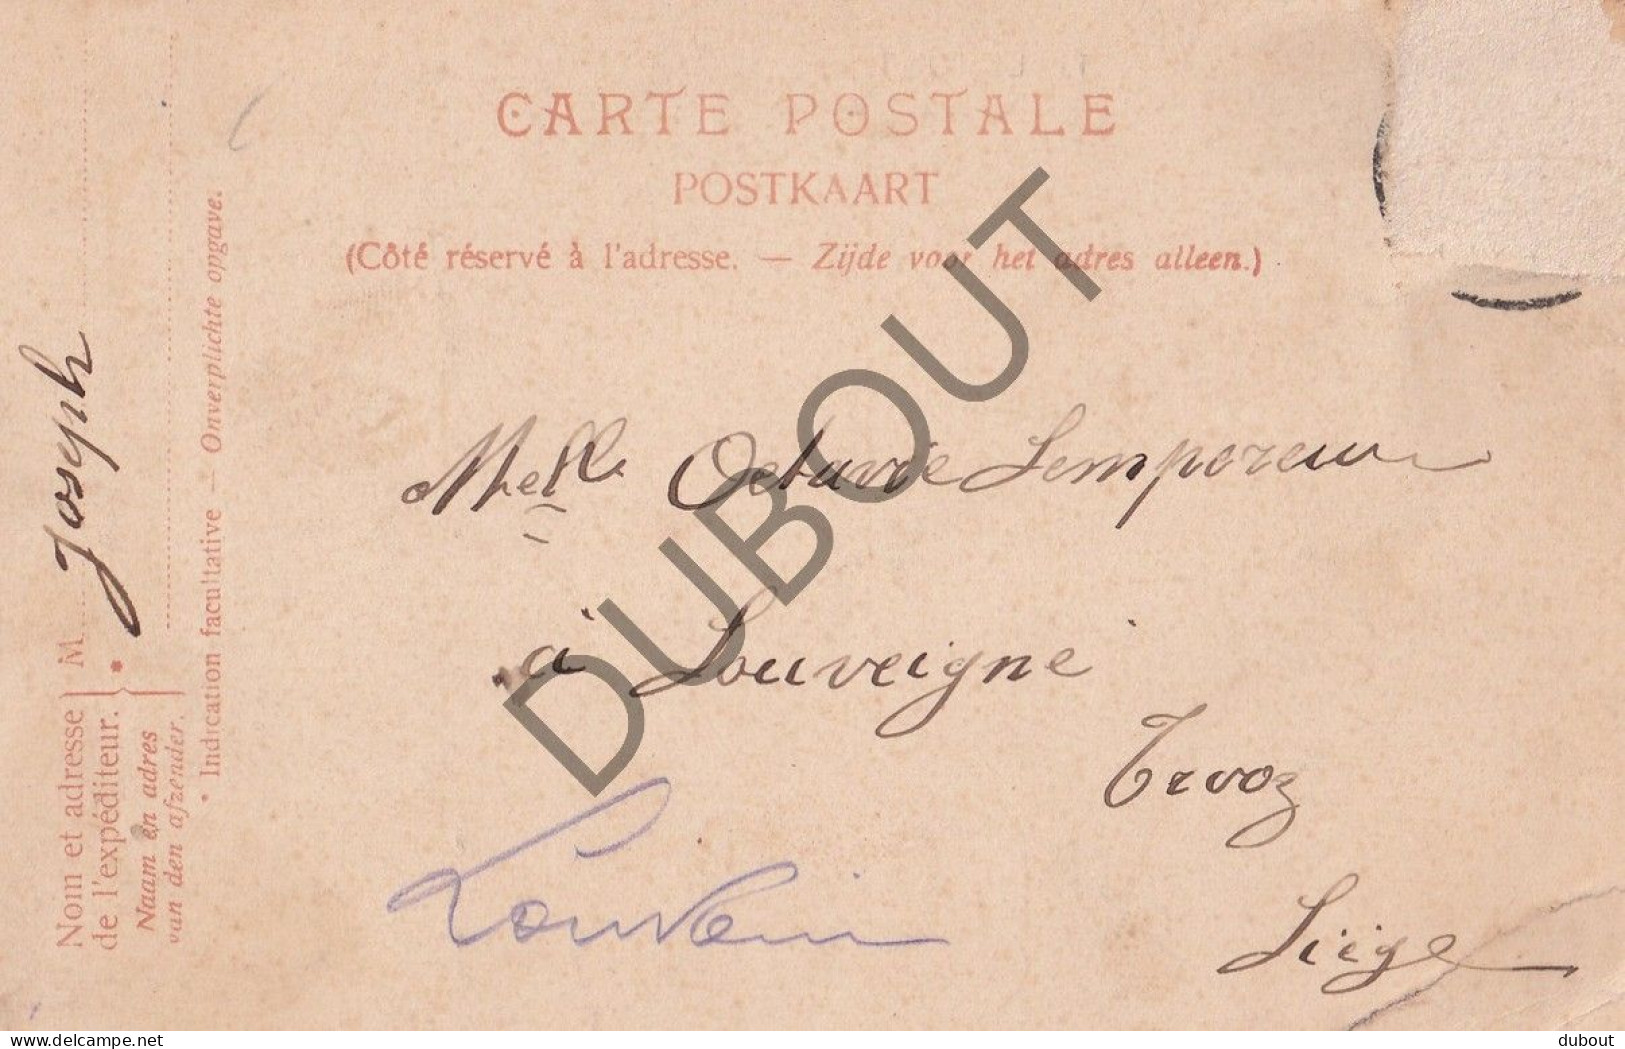 CARTE POSTALE
POSTKAART
(Côté réservé à l'adresse. — Zijde voor het adres alleen.)
Melle Octavie Lempereur
à Louveigné
Trooz
Liège
Louvain
Nom et adresse M
de l'expéditeur.
Naam en adres
van den afzender.
*
Joseph
* Indication facultative — Onverplichte opgave.
DUBOUT
delcampe.net
dubout